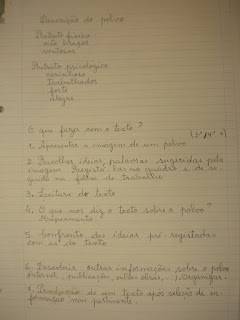 Descrição do polvo
Retrato físico
oito braços
ventosas
Retrato psicológico
carinhoso
trabalhador
forte
alegre
O que fazer com o texto?
(3º/4º)
1. Apresentar a imagem de um polvo
2. Recolher ideias, palavras sugeridas pela
imagem. Registá-las no quadro e de se
guida na folha de trabalho
3. Leitura do texto
4. O que nos diz o texto sobre o polvo?
5. Confronto das ideias pré-registadas
com as do texto
6. Descobrir outras informações sobre o polvo
Internet, publicações, outras obras, ... Organizar.
7. Produção de um texto após seleção da in-
formação